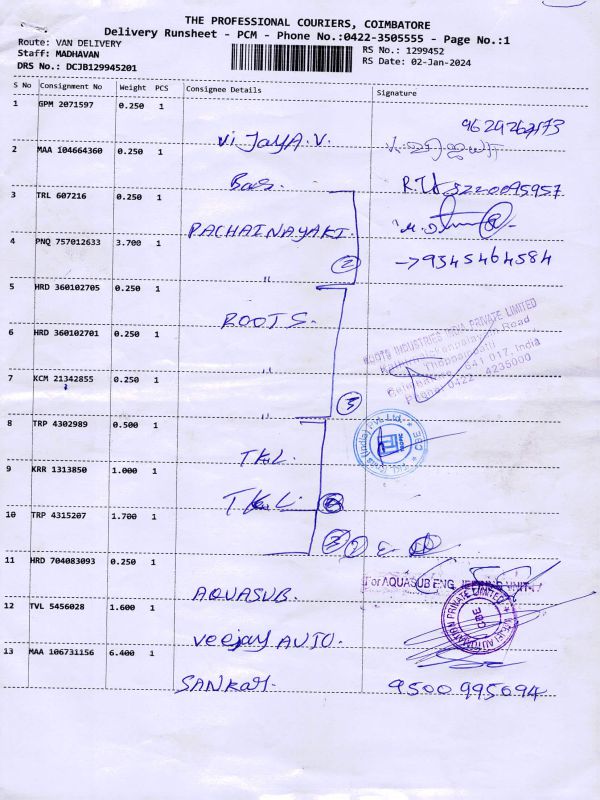 THE PROFESSIONAL COURIERS, COIMBATORE
Delivery Runsheet - PCM - Phone No.:0422-3505555 - Page No.:1
Route: VAN DELIVERY
Staff: MADHAVAN
DRS No.: DCJB129945201
RS No.: 1299452
RS Date: 02-Jan-2024
S No Consignment No Weight PCS Consignee Details Signature
1 GPM 2071597 0.250 1
Vijaya.V. 9629267173
2 MAA 104664360 0.250 1
Bas. 8220095957
3 TRL 607216 0.250 1
PACHAINAYAKI.
4 PNQ 757012633 3.700 1
" 2 →9345464584
5 HRD 360102705 0.250 1
ROOTS.
ROOTS INDUSTRIES INDIA PRIVATE LIMITED
6 HRD 360102701 0.250 1
Thoppampatti
Coimbatore - 641 017. India
Phone: 0422 - 4235000
7 KCM 21342855 0.250 1
" 3
8 TRP 4302989 0.500 1
TKL.
9 KRR 1313850 1.000 1
TKL.
10 TRP 4315207 1.700 1
11 HRD 704083093 0.250 1
AQUASUB.
For AQUASUB ENGINEERING UNIT
12 TVL 5456028 1.600 1
Veejay AUTO.
AUTOMATION PRIVATE LIMITED
CBE
13 MAA 106731156 6.400 1
SANKAR. 9500995094